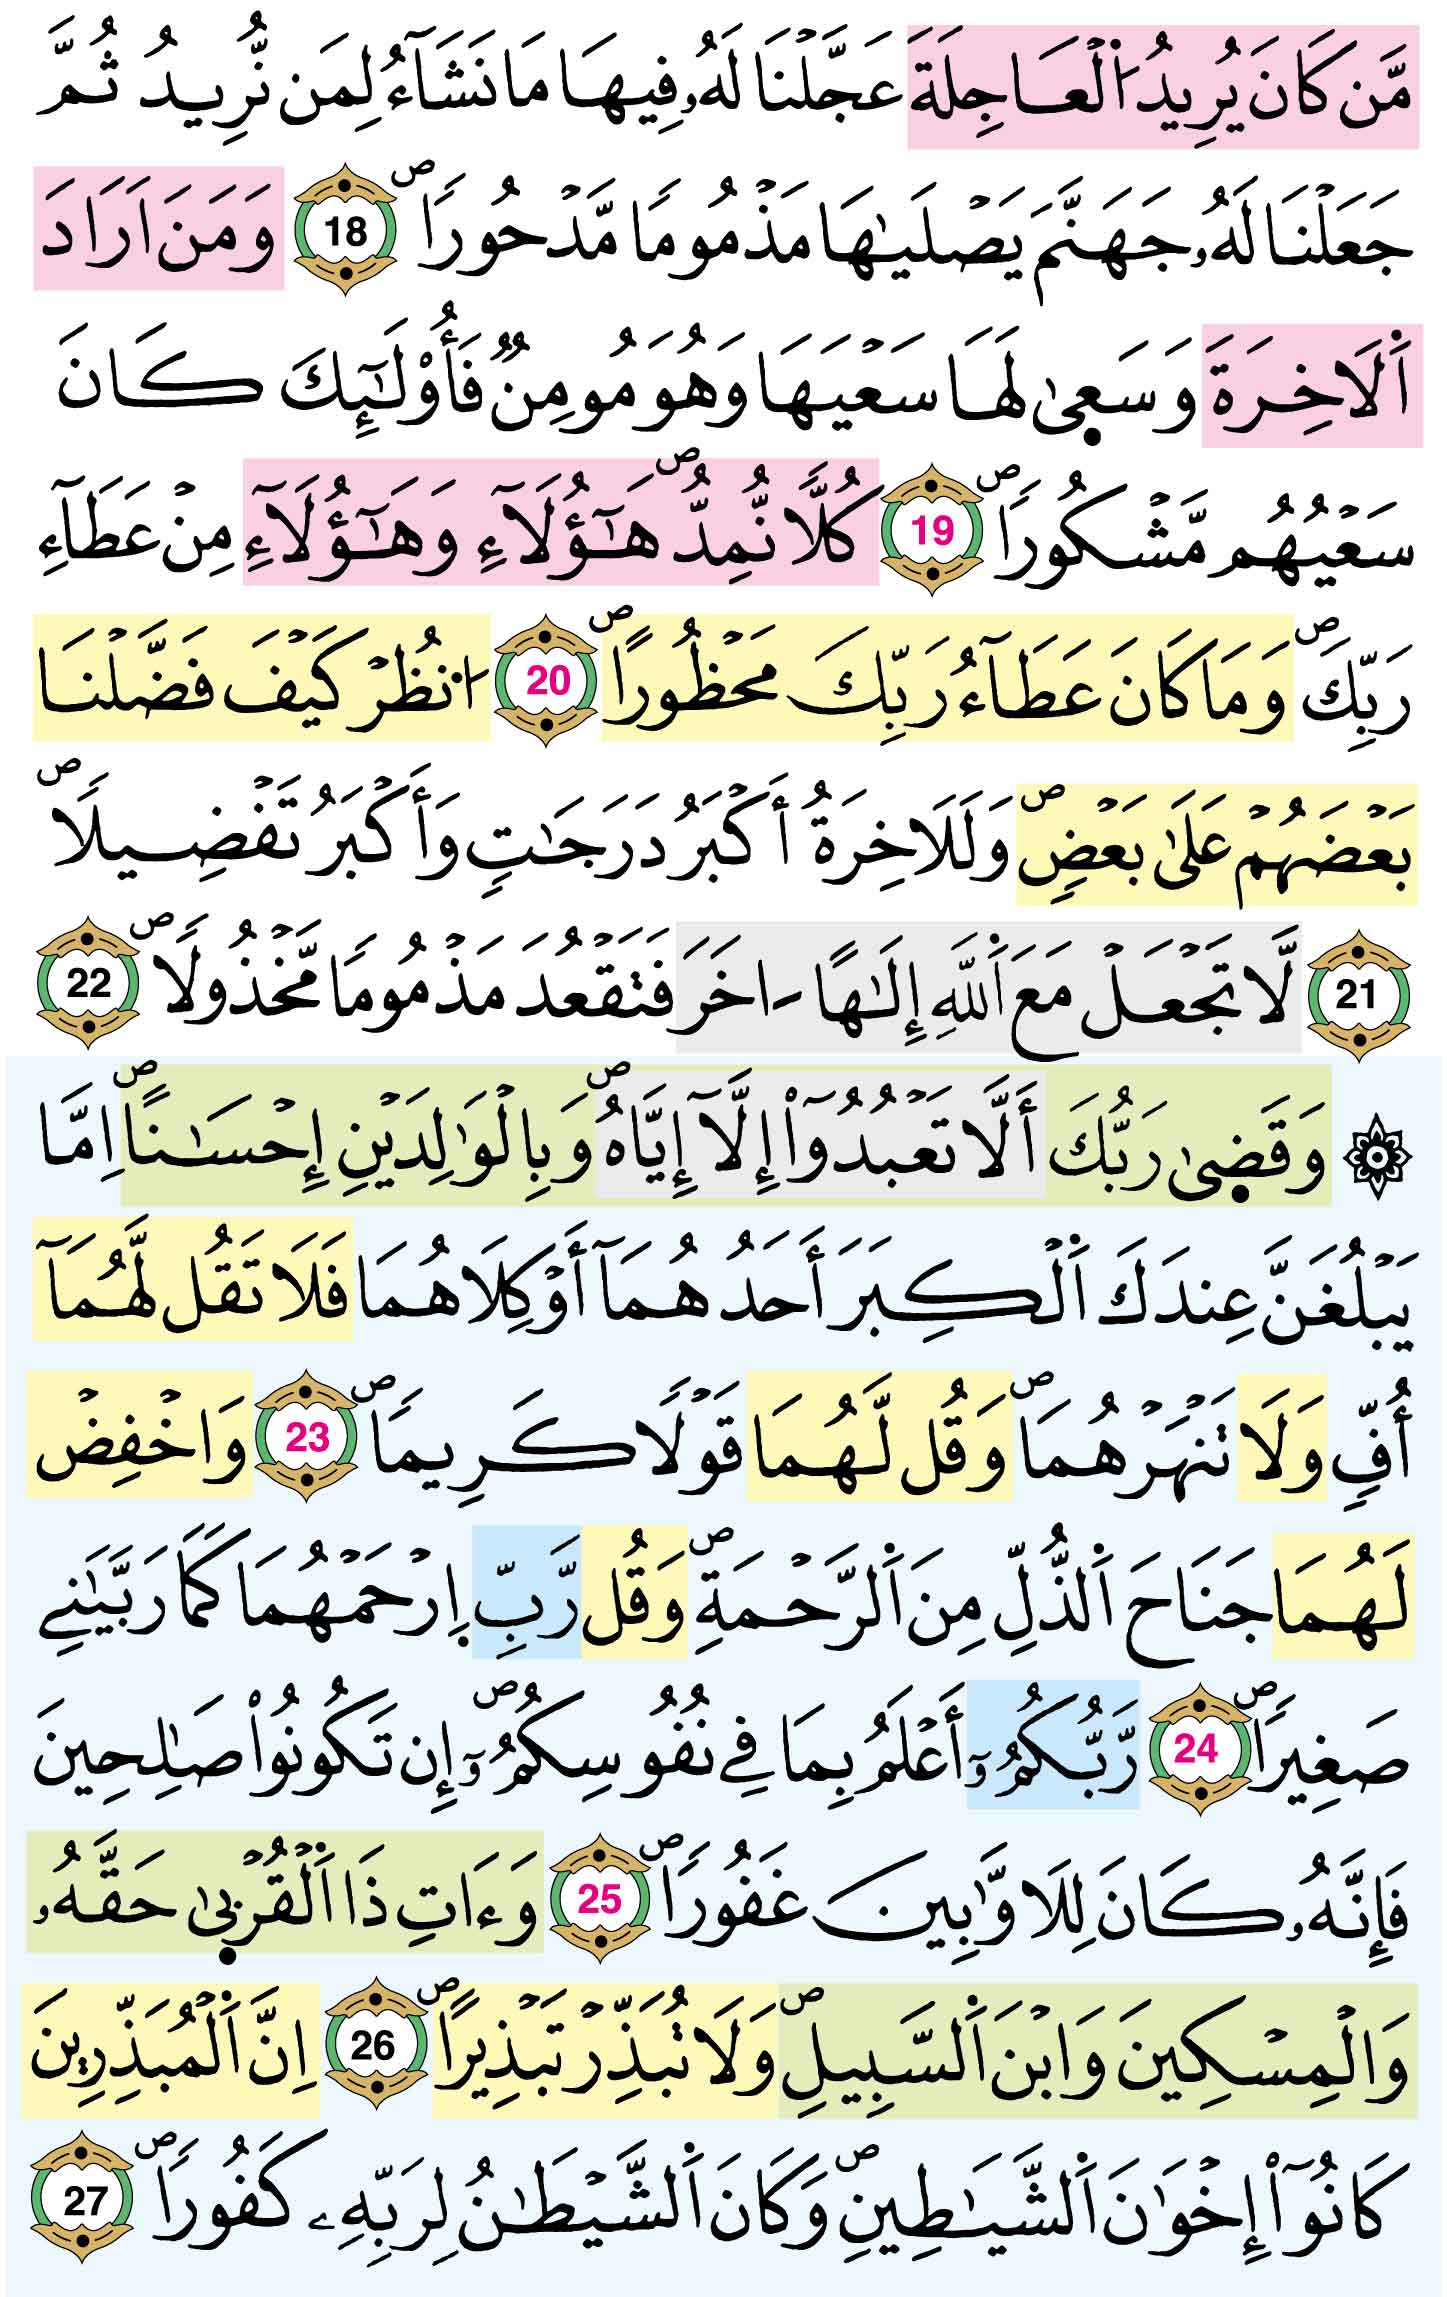 مَّن كَانَ يُرِيدُ اُ۬لْعَاجِلَةَ عَجَّلْنَا لَهُۥ فِيهَا مَا نَشَآءُ لِمَن نُّرِيدُ ثُمَّ
جَعَلْنَا لَهُۥ جَهَنَّمَ يَصْلَيٰهَا مَذْمُومًا مَّدْحُورًا ۖ 18 وَمَنَ اَرَادَ
اَ۬لَاخِرَةَ وَسَع۪يٰ لَهَا سَعْيَهَا وَهُوَ مُومِنٌ فَأُوْلَٰٓئِكَ كَانَ
سَعْيُهُم مَّشْكُورًا ۖ 19 كُلًّا نُّمِدُّ ۖ هَٰٓؤُلَآءِ وَهَٰٓؤُلَآءِ مِنْ عَطَآءِ
رَبِّكَ ۖ وَمَا كَانَ عَطَآءُ رَبِّكَ مَحْظُورًا ۖ 20 اَ۟نظُرْ كَيْفَ فَضَّلْنَا
بَعْضَهُمْ عَلَىٰ بَعْضٍ ۖ وَلَلَاخِرَةُ أَكْبَرُ دَرَجَٰتٍ وَأَكْبَرُ تَفْضِيلًا ۖ
21 لَّا تَجْعَلْ مَعَ اَ۬للَّهِ إِلَٰهًا ـاخَرَ فَتَقْعُدَ مَذْمُومًا مَّخْذُولًا ۖ 22
۞ وَقَض۪يٰ رَبُّكَ أَلَّا تَعْبُدُوٓاْ إِلَّآ إِيَّاهُ ۖ وَبِالْوَٰلِدَيْنِ إِحْسَٰنًا ۖ اِمَّا
يَبْلُغَنَّ عِندَكَ اَ۬لْكِبَرَ أَحَدُهُمَآ أَوْ كِلَاهُمَا فَلَا تَقُل لَّهُمَآ
أُفٍّ وَلَا تَنْهَرْهُمَا ۖ وَقُل لَّهُمَا قَوْلًا كَرِيمًا ۖ 23 وَاخْفِضْ
لَهُمَا جَنَاحَ اَ۬لذُّلِّ مِنَ اَ۬لرَّحْمَةِ ۖ وَقُل رَّبِّ اِ۪رْحَمْهُمَا كَمَا رَبَّيَٰنِے
صَغِيرًا ۖ 24 رَّبُّكُمُۥٓ أَعْلَمُ بِمَا فِے نُفُوسِكُمُۥٓ ۖ إِن تَكُونُواْ صَٰلِحِينَ
فَإِنَّهُۥ كَانَ لِلَاوَّٰبِينَ غَفُورًا ۖ 25 وَءَاتِ ذَا اَ۬لْقُرْب۪يٰ حَقَّهُۥ
وَالْمِسْكِينَ وَابْنَ اَ۬لسَّبِيلِ ۖ وَلَا تُبَذِّرْ تَبْذِيرًا ۖ 26 اِنَّ اَ۬لْمُبَذِّرِينَ
كَانُوٓاْ إِخْوَٰنَ اَ۬لشَّيَٰطِينِ ۖ وَكَانَ اَ۬لشَّيْطَٰنُ لِرَبِّهِۦ كَفُورًا ۖ 27